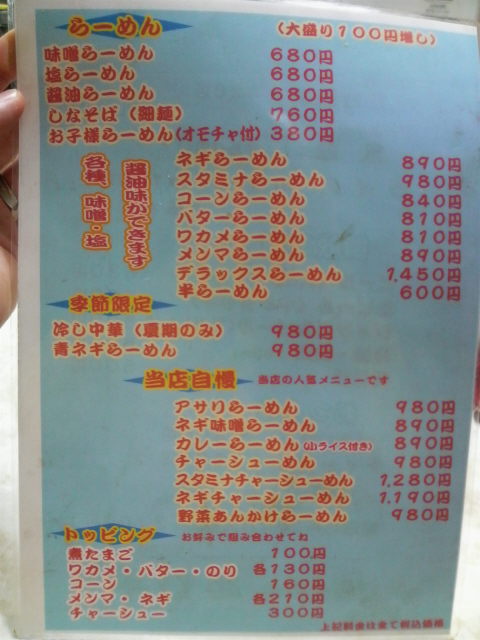 らーめん (大盛り100円増し)
味噌らーめん 680円
塩らーめん 680円
醤油らーめん 680円
しなそば(細麺) 760円
お子様らーめん(オモチャ付) 380円
各種、味噌・塩
醤油味ができます
ネギらーめん 890円
スタミナらーめん 980円
コーンらーめん 840円
バターらーめん 810円
ワカメらーめん 810円
メンマらーめん 890円
デラックスらーめん 1,450円
半らーめん 600円
季節限定
冷し中華(夏期のみ) 980円
青ネギらーめん 980円
当店自慢 当店の人気メニューです
アサリらーめん 980円
ネギ味噌らーめん 890円
カレーらーめん(小ライス付き) 890円
チャーシューめん 980円
スタミナチャーシューめん 1,280円
ネギチャーシューめん 1,190円
野菜あんかけらーめん 980円
トッピング お好みで組み合わせてね
煮たまご 100円
ワカメ・バター・のり 各130円
コーン 160円
メンマ・ネギ 各210円
チャーシュー 300円
上記料金は全て税込価格